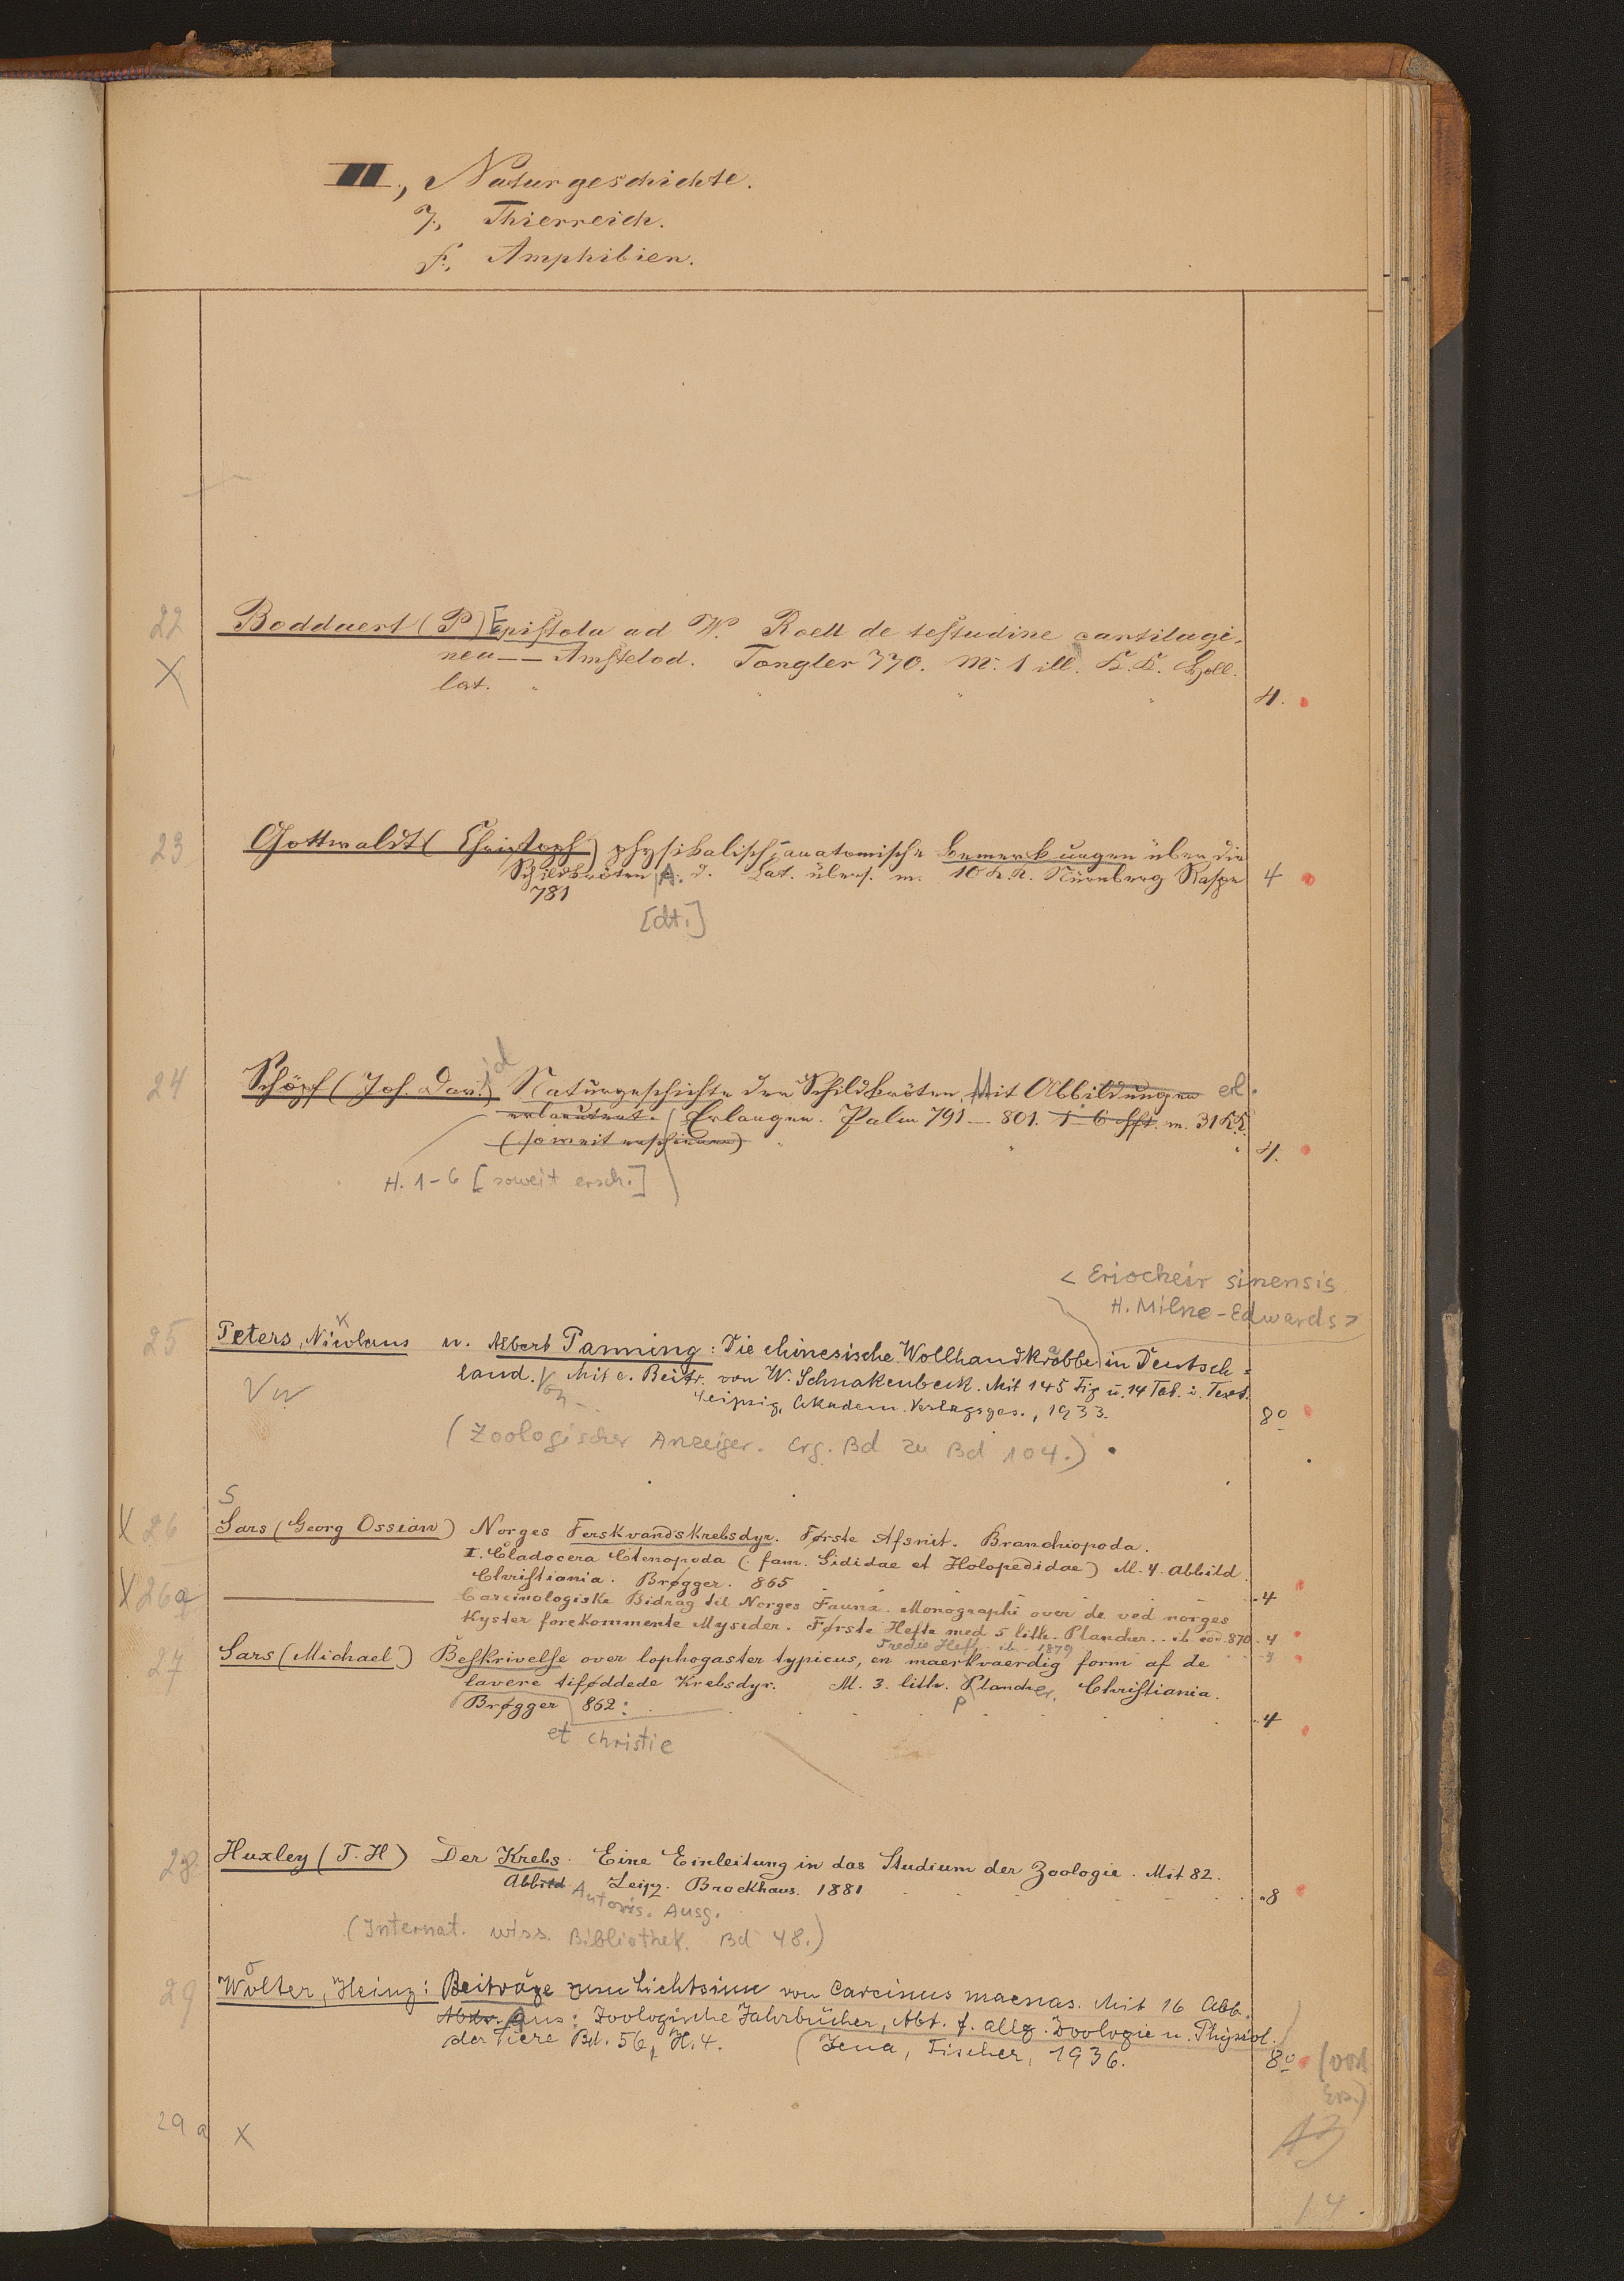 III., Naturgeschichte.
7., Thierreich.
f., Amphibien.
22 Boddaert (P) Epistola ad W. Roell de testudine cartilagi-
X nea -- Amstelod. Tongler 770. M. 1 ill. K. K. Holl.
lat. 4.
23 Gottwaldt (Christoph) physikalisch-anatomische Bemerkungen über die
Schildkröten A. d. Lat. übers. m. 10 K. K. Nürnberg Raspe 4
781
[dt.]
24 Schöpf (Joh. David) Naturgeschichte der Schildkröten. Mit Abbildungen erl.
erlautert. Erlangen. Palm 791 - 801. 1-6 Hft. m. 31 K.K.
(soweit erschienen) 4.
H. 1-6 [soweit ersch.]
< Eriocheir sinensis
H. Milne-Edwards >
25 Peters, Nikolaus u. Albert Panning: Die chinesische Wollhandkrabbe in Deutsch=
land. Mit e. Beitr. von W. Schnakenbeck. Mit 145 Fig u. 14 Tab. i. Text.
Leipzig, Akadem. Verlagsges., 1933. 8º
(Zoologischer Anzeiger. Erg. Bd zu Bd 104.)
S
X 26 Sars (Georg Ossian) Norges Ferskvandskrebsdyr. Første Afsnit. Branchiopoda.
I. Cladocera Ctenopoda (: fam. Sididae et Holopedidae) M. 4. Abbild.
Christiania. Brøgger. 865 4
X 26a Carcinologiske Bidrag til Norges Fauna. Monographi over de ved norges
Kyster forekommente Mysider. Første Hefte med 5 lith. Plancher. ib. eod. 870. 4
Tredie Heft. ib. 1879 4
27 Sars (Michael) Beskrivelse over lophogaster typicus, en maerkvaerdig form af de
lavere tiføddede Krebsdyr. M. 3. lith. Plancher. Christiania.
Brøgger 862: p 4
et Christie
28 Huxley (T. H) Der Krebs. Eine Einleitung in das Studium der Zoologie. Mit 82.
Abbild Leipz. Brockhaus. 1881 8
Autoris. Ausg.
(Internat. wiss. Bibliothek. Bd 48.)
29 Wolter, Heinz: Beiträge zum Lichtsinn von Carcinus maenas. Mit 16 Abb.
Abdr. Aus: Zoologische Jahrbücher, Abt. f. allg. Zoologie u. Physiol.
der Tiere Bd. 56, H. 4. Jena, Fischer, 1936. 8º
29 a X
14.